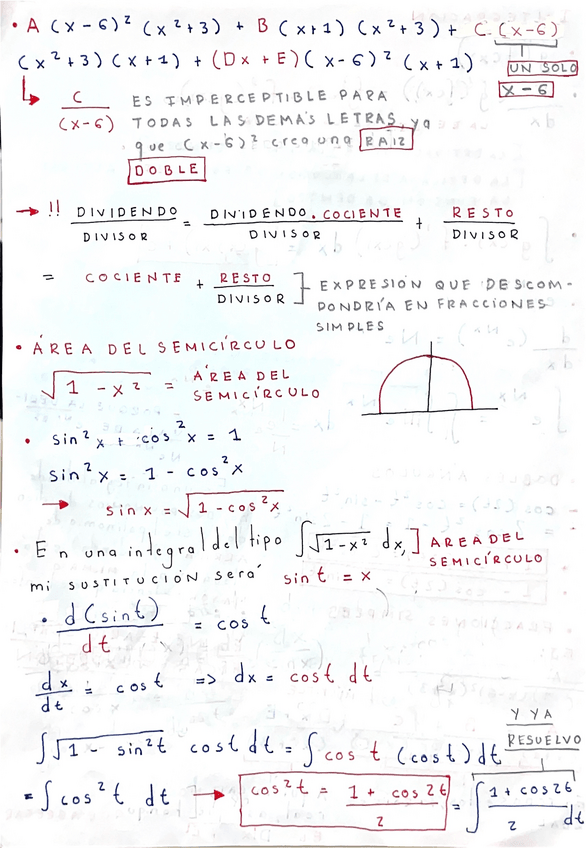 • A (x-6)² (x²+3) + B (x+1) (x²+3) + C (x-6)
(x²+3) (x+1) + (Dx + E)(x-6)² (x+1)
UN SOLO
x-6
C/(x-6) ES IMPERCEPTIBLE PARA
TODAS LAS DEMÁS LETRAS, ya
que (x-6)² crea una RAIZ
DOBLE
→ !! DIVIDENDO/DIVISOR = DIVIDENDO . COCIENTE/DIVISOR + RESTO/DIVISOR
= COCIENTE + RESTO/DIVISOR ] EXPRESIÓN QUE DESCOM-
PONDRÍA EN FRACCIONES
SIMPLES
• ÁREA DEL SEMICÍRCULO
√1 - x² = ÁREA DEL
SEMICÍRCULO
• sin²x + cos²x = 1
sin²x = 1 - cos²x
→ sin x = √1 - cos²x
• En una integral del tipo ∫√1-x² dx, ] AREA DEL
SEMICÍRCULO
mi SUSTITUCIÓN será sin t = x
• d(sint)/dt = cos t
dx/dt = cost => dx = cost dt
∫√1 - sin²t cost dt = ∫ cos t (cost) dt
Y YA
RESUELVO
= ∫cos²t dt → cos²t = 1 + cos2t/2 = ∫ 1 + cos2t/2 dt